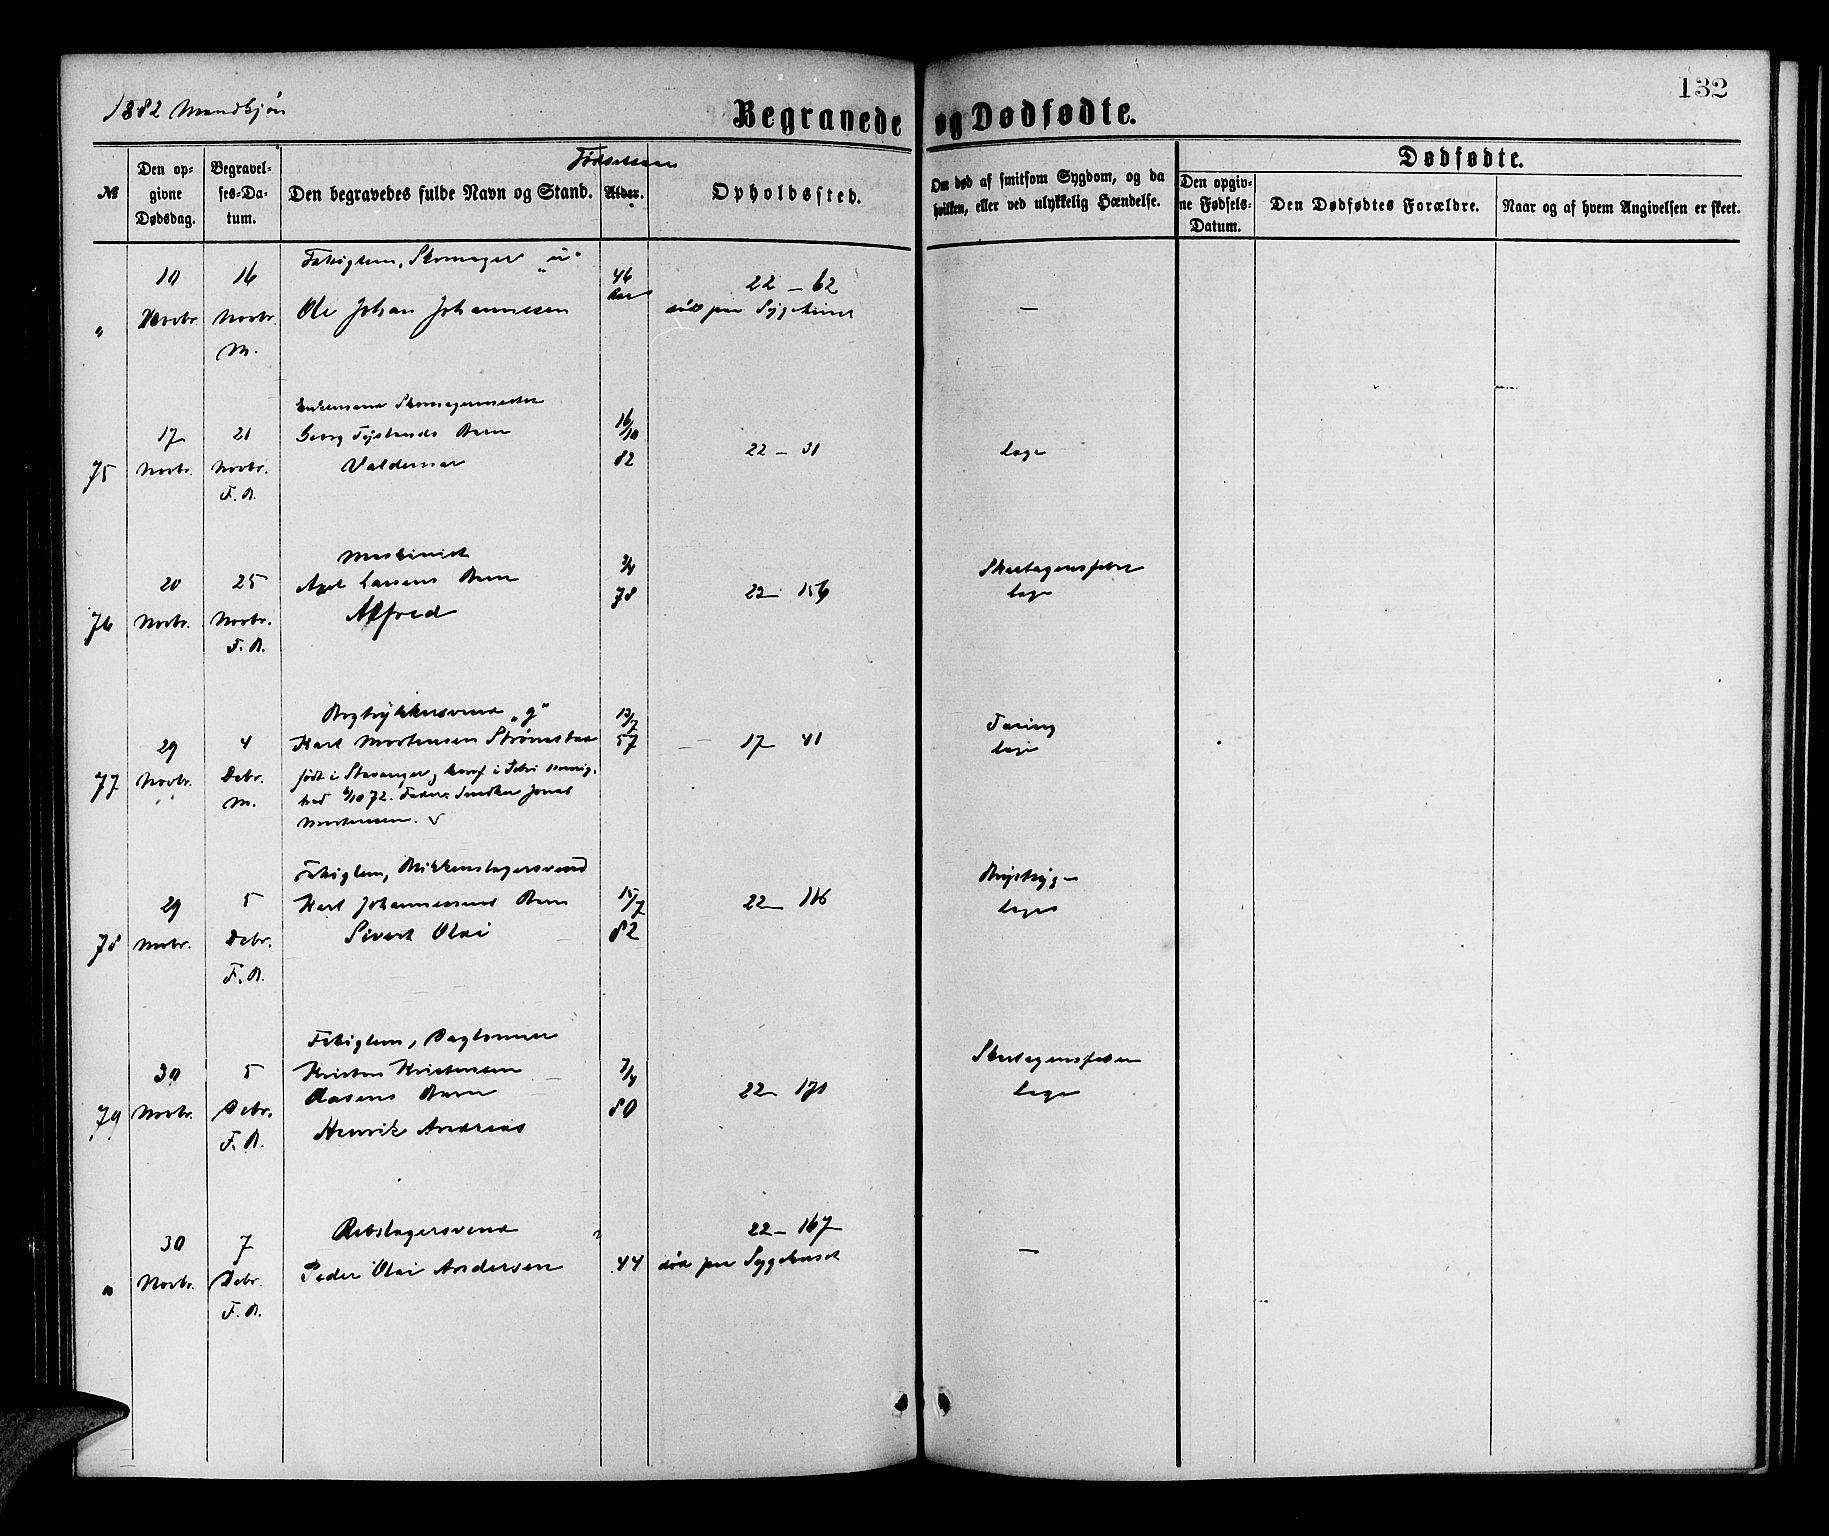 132
1882 Mandkjøn
Begravede og Dødfødte.
Dødfødte.
№
Den op-
givne
Dødsdag.
Begravel-
ses-Da-
tum.
Den begravedes fulde Navn og Stand.
Fødselsaar
Alder.
Opholdssted.
Om død af smitsom Sygdom, og da
hvilken, eller ved ulykkelig Hændelse.
Den opgiv-
ne Fødsels-
Datum.
Den Dødfødtes Forældre.
Naar og af hvem Angivelsen er skeet.
" 10 Novbr. 16 Novbr. M.
Fattiglem, Skomager "u"
Ole Johan Johannesen
46 Aar
22 - 62
død paa Sygehuset
—
75 17 Novbr. 21 Novbr. F. A.
Enkemand Skomagermester
Georg Tøjlands Barn
Valdemar
16/10 82
22 - 31
læge
76 20 Novbr. 25 Novbr. F. A.
Maskinist
Axel Larsens Barn
Alfred
78
22 - 156
Skarlagensfeber
læge
77 29 Novbr. 4 Debr. M.
Bogtrykkersvend "g"
Karl Mortensen Strømsboe
født i Stavanger, konf i Petri menig-
hed 6/10 72. Fader: Snedker Jonas
Mortensen.
13/7 57
17 - 41
Tæring
læge
78 29 Novbr. 5 Debr. F. A.
Fattiglem, Blikkenslagersvend
Karl Johannesens Barn
Sivert Olai
15/7 82
22 - 116
Brystsyge
læge
79 30 Novbr. 5 Debr. F. A.
Fattiglem, Daglønner
Kristen Kristensen
Aasens Barn
Henrik Andreas
80
22 - 171
Skarlagensfeber
læge
" 30 Novbr. 7 Debr. F. A.
Rebslagersvend
Peder Olai Andersen
44
22 - 167
død paa Sygehuset
—